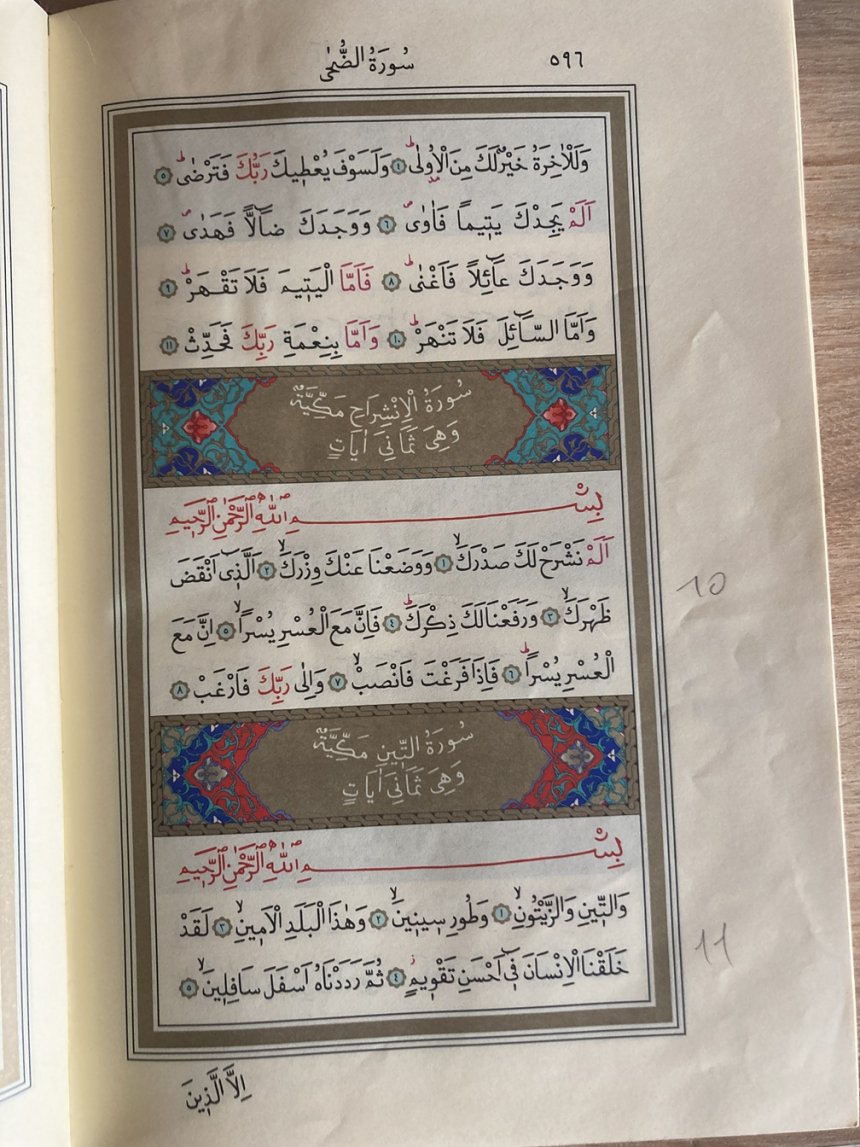 سُورَةُ الضُّحٰى ٥٩٦
وَلَلْاٰخِرَةُ خَيْرٌ لَكَ مِنَ الْاُولٰىۜ ﴿٤﴾ وَلَسَوْفَ يُعْطٖيكَ رَبُّكَ فَتَرْضٰىۜ ﴿٥﴾
اَلَمْ يَجِدْكَ يَتٖيماً فَاٰوٰىۖ ﴿٦﴾ وَوَجَدَكَ ضَٓالاًّ فَهَدٰىۖ ﴿٧﴾
وَوَجَدَكَ عَٓائِلاً فَاَغْنٰىۜ ﴿٨﴾ فَاَمَّا الْيَتٖيمَ فَلَا تَقْهَرْۜ ﴿٩﴾
وَاَمَّا السَّٓائِلَ فَلَا تَنْهَرْۜ ﴿١٠﴾ وَاَمَّا بِنِعْمَةِ رَبِّكَ فَحَدِّثْ ﴿١١﴾
سُورَةُ الْاِنْشِرَاحِ مَكِّيَّةٌ
وَهِيَ ثَمَانِيَ اٰيَاتٍ
بِسْمِ اللّٰهِ الرَّحْمٰنِ الرَّحٖيمِ
اَلَمْ نَشْرَحْ لَكَ صَدْرَكَۙ ﴿١﴾ وَوَضَعْنَا عَنْكَ وِزْرَكَۙ ﴿٢﴾ اَلَّذٖٓي اَنْقَضَ
ظَهْرَكَۙ ﴿٣﴾ وَرَفَعْنَا لَكَ ذِكْرَكَۜ ﴿٤﴾ فَاِنَّ مَعَ الْعُسْرِ يُسْراًۙ ﴿٥﴾ اِنَّ مَعَ
الْعُسْرِ يُسْراًۜ ﴿٦﴾ فَاِذَا فَرَغْتَ فَانْصَبْۙ ﴿٧﴾ وَاِلٰى رَبِّكَ فَارْغَبْ ﴿٨﴾
10
سُورَةُ التّٖينِ مَكِّيَّةٌ
وَهِيَ ثَمَانِيَ اٰيَاتٍ
بِسْمِ اللّٰهِ الرَّحْمٰنِ الرَّحٖيمِ
وَالتّٖينِ وَالزَّيْتُونِۙ ﴿١﴾ وَطُورِ سٖينٖينَۙ ﴿٢﴾ وَهٰذَا الْبَلَدِ الْاَمٖينِۙ ﴿٣﴾ لَقَدْ
خَلَقْنَا الْاِنْسَانَ فٖٓي اَحْسَنِ تَقْوٖيمٍۘ ﴿٤﴾ ثُمَّ رَدَدْنَاهُ اَسْفَلَ سَافِلٖينَۙ ﴿٥﴾
11
اِلَّا الَّذٖينَ